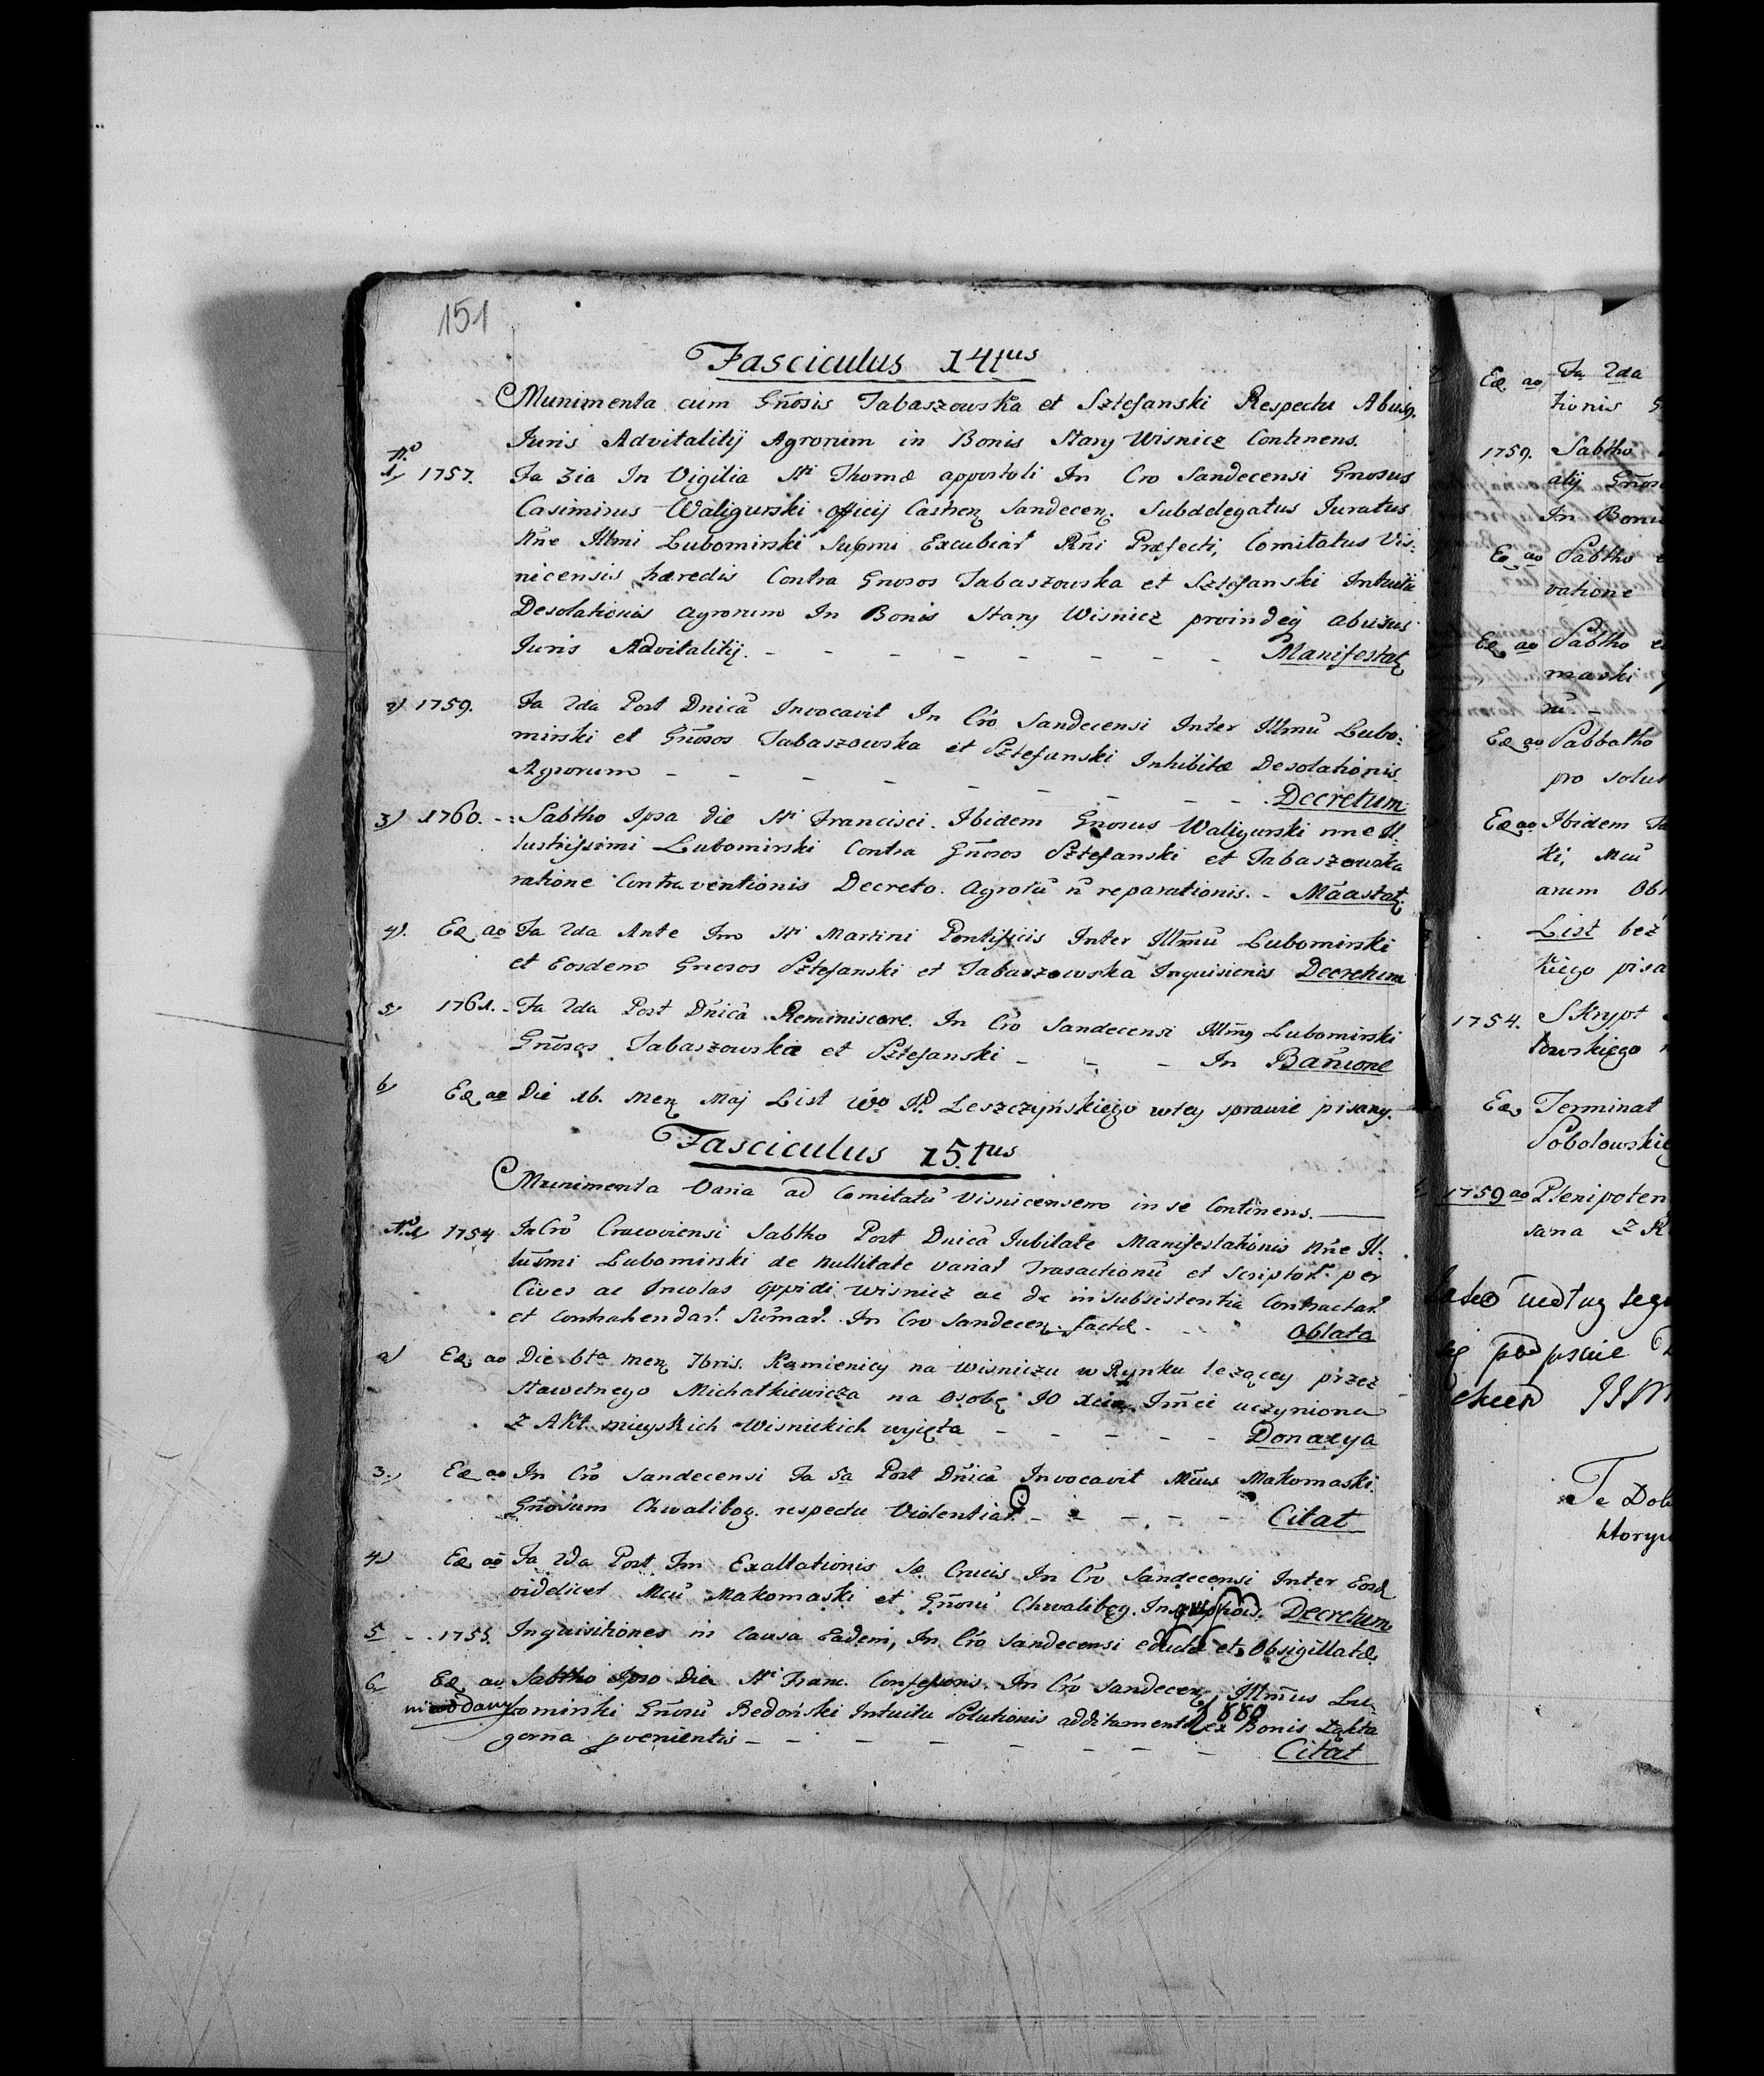 151
Fasciculus 14tus
Munimenta cum Gñosis Tabaszowska et Sztefanski Respectu Abusq.
Juris Advitalitij Agrorum in Bonis Stary Wisnicz Continens.
No 1) 1757. Fa 3ia In Vigilia Sti Thomæ appostoli In Cro Sandecensi Gnosus
Casimirus Waligurski officij Castren Sandecen. Subdelegatus Juratus
Nñe Illmi Lubomirski Supmi Excubiar Rñi Præfecti, Comitatus Vis:
nicensis hæredis Contra Gnosos Tabaszowska et Sztefanski Intuitu
Desolationis Agrorum In Bonis Stary Wisnicz proindeq abusus
Juris Advitalitij. - - - - - - - Manifestat
2) 1759. Fa 2da Post Dnicã Invocavit In Cro Sandecensi Inter Illmũ Lubo:
mirski et Gñosos Tabaszowska et Sztefanski Inhibitæ Desolationis
Agrorum - - - - - - - - Decretum
3) 1760. Sabtho Ipsa die Sti Francisci. Ibidem Gnosus Waligurski nne Il-
lustrissimi Lubomirski Contra Gñosos Sztefanski et Tabaszowska
ratione Contraventionis Decreto. Agrorũ ñ reparationis. - Mãastat
4). Eo ao Fa 2da Ante Fm Sti Martini Pontificis Inter Illmũ Lubomirski
et Eosdem Gnosos Sztefanski et Tabaszowska Inquisionis Decretum
5) 1761. Fa 2da Post Dnicã Reminiscere. In Cro Sandecensi Illmg Lubomirski
Gñosos Tabaszowskæ et Sztefanski - - - In Bañione
6) Eo ao Die 16. Men Maj List Wo JP. Leszczyńskiego wtey sprawie pisany.
Fasciculus 15.tus
Munimenta Varia ad Comitatũ Visnicensem in se Continens.
No 1) 1754 In Cro Cracoviensi Sabtho Post Dnicã Jubilate Manifestationis Nñe Il:
lusmi Lubomirski de Nullitate variar Trasactionũ et Scriptor. per
Cives ac Incolas Oppidi Wisnicz ac de insubsistentia Contractar.
et contrahendar. Sũmar. In Cro Sandecen. factæ - - Oblata
2) Eo ao Die 6ta Men 7bris. Kamienicy na Wisniczu w Rynku leżącey przez
Sławetnego Michałkiewicza na Osobę JO Xcia Jmci uczyniona
z Akt mieyskich Wisnickich wyięta - - - - - Donacya
3.) Eo ao In Cro Sandecensi Fa 5a Post Dnicã Invocavit Mcus Makomaski
Gñosum Chwalibog. respectu Violentiar. - - - - - Citat
4) Eo ao Fa 2da Post Fm Exaltationis Sæ Crucis In Cro Sandecensi Inter Eosd
videlicet Mcũ Makomaski et Gñosũ Chwalibog. Decretum
5 - . 1755. Inquisitiones in Causa Eadem, In Cro Sandecensi eductæ et Obsigillatæ
6 Eo ao Sabtho Ipso Die Sti Franc. Confessoris. In Cro Sandecen. Illmus Lu-
nieoddany bomirski Gñosũ Bedoński Intuitu Solutionis additamenti ex Bonis Łąkta
1880
gorna pvenientis - - - - - - - - Citat
Eo ao Fa 2da
tionis
1759. Sabtho
alij Gños
In Bonis
Eo ao Sabtho
ratione
Eo ao Sabtho
maski
rũ -
Eo ao Sabbatho
pro solut
Eo ao Ibidem
ki, Mcũ
arum
List bez
kiego pisa
1754. Skrypt
kowskiego
Eo Terminat
Sobolowskie
1759 ao Plenipoten
sana z
według tego
podpisuie
Te Dob
ktory